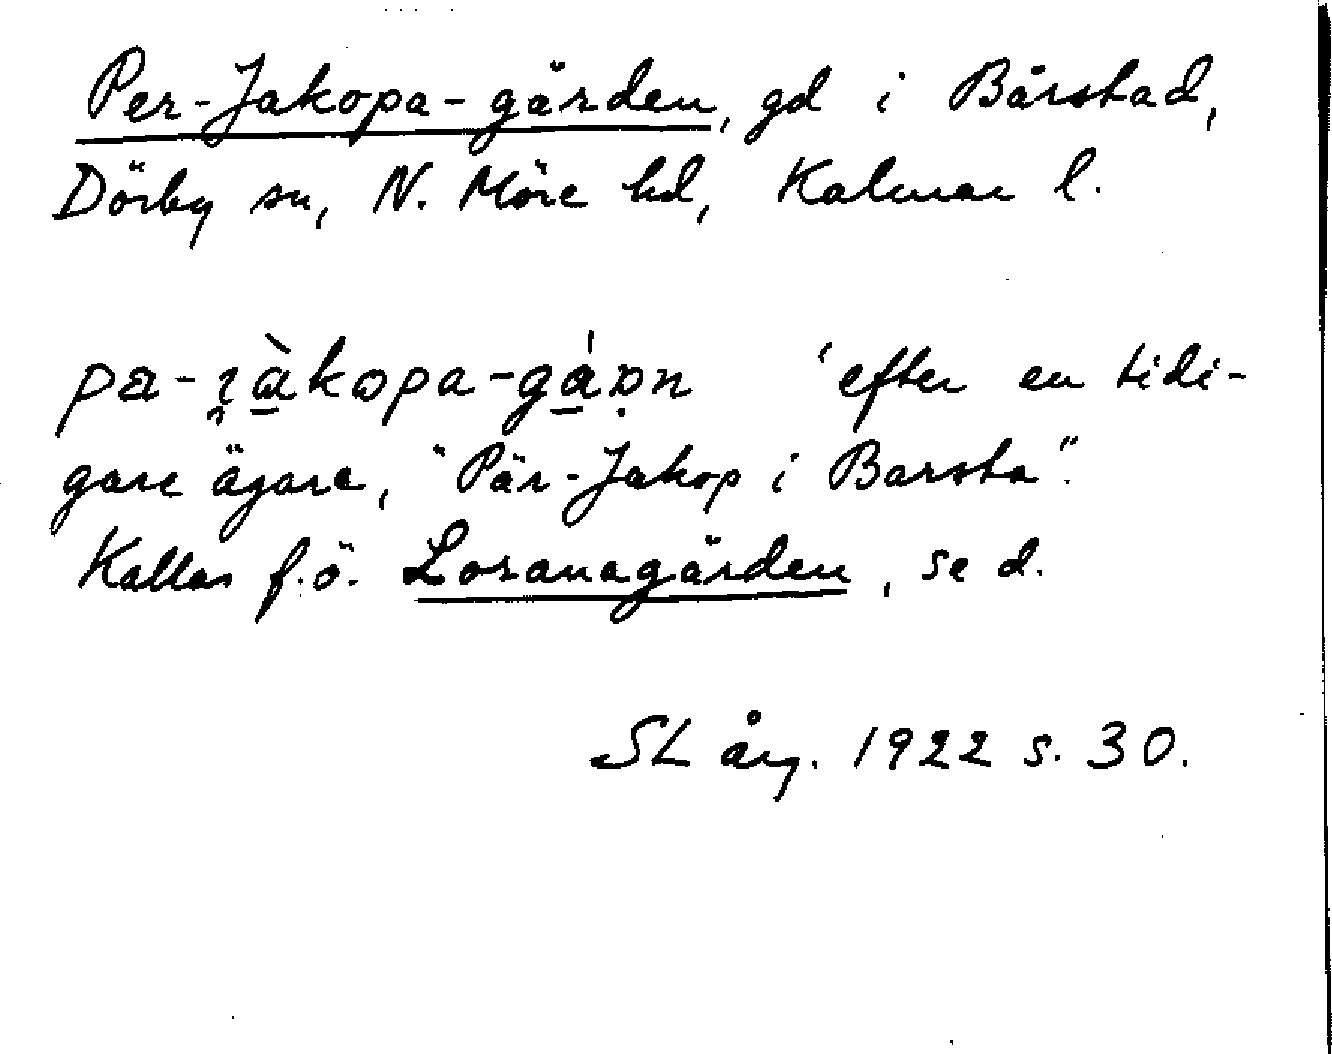 Per-Jakopa-gården, gd i Bårstad,
Dörby sn, N. Möre hd, Kalmar l.
'efter en tidi-
gare ägare, "Pär-Jakop i Barsta".
Kallas f.ö. Loranagården, se d.
SL årg. 1922 s. 30.